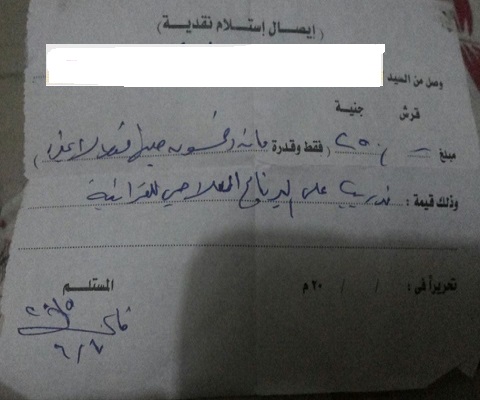 ( إيصال إستلام نقدية )
وصل من السيد
قرش جنية
مبلغ ـــ / ٢٥٠ ( فقط وقدرة مائة وخمسون جنيها فقط لا غير )
وذلك قيمة : تدريب على البرنامج العلاجي للقرائية
تحريراً فى : / / ٢٠ م
المستلم